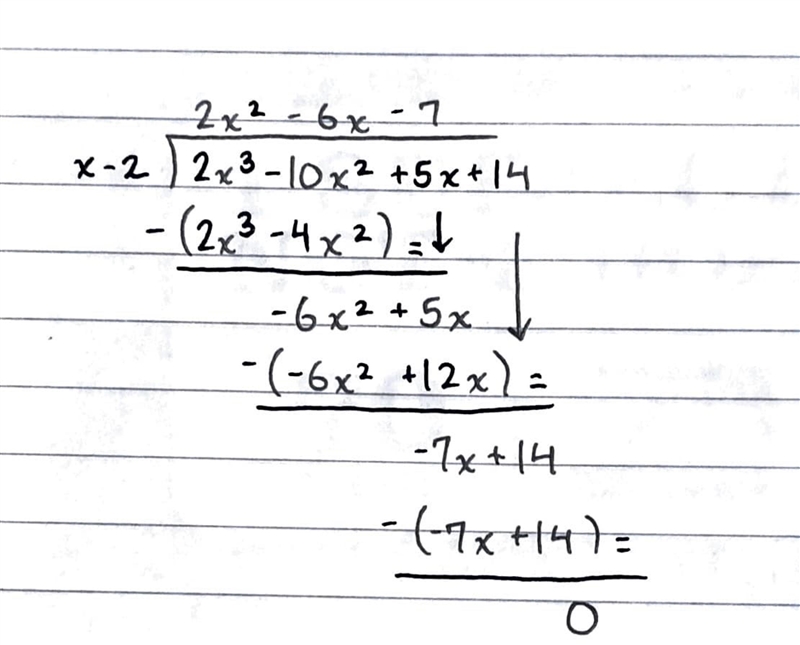 2x² - 6x - 7
x - 2 ) 2x³ - 10x² + 5x + 14
- (2x³ - 4x²) = ↓
-6x² + 5x
- (-6x² + 12x) =
-7x + 14
- (-7x + 14) =
0